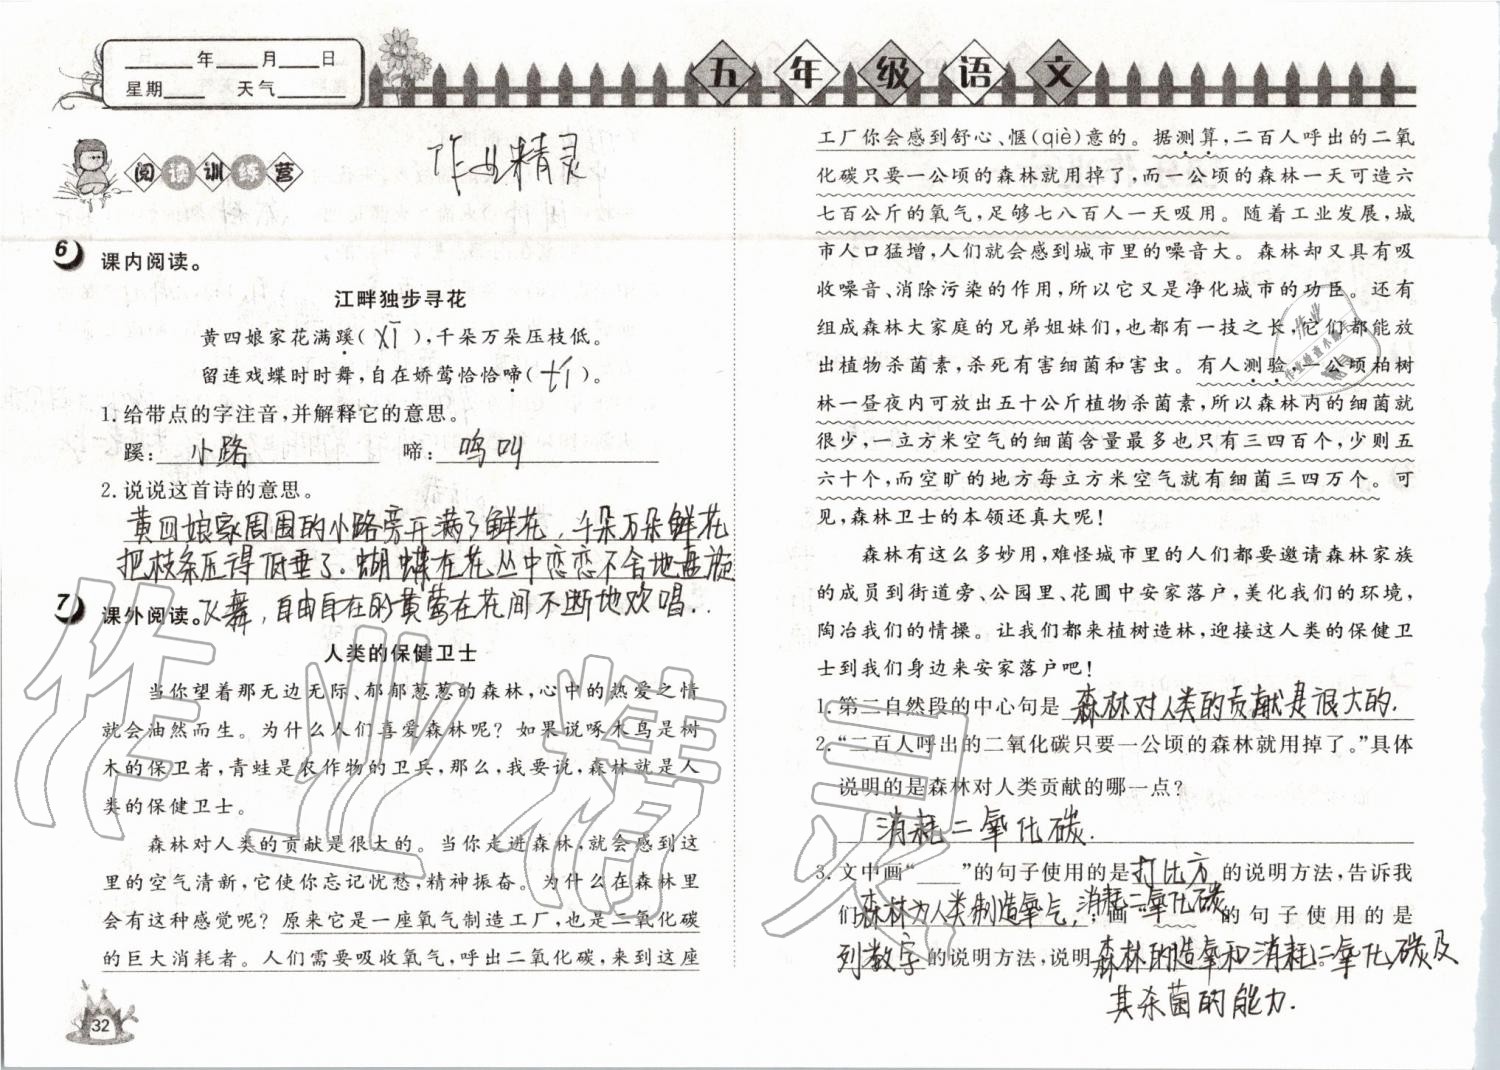 ____年____月____日
星期____ 天气______
五年级语文
阅读训练营
作业精灵
6 课内阅读。
江畔独步寻花
黄四娘家花满蹊( xī ),千朵万朵压枝低。
留连戏蝶时时舞,自在娇莺恰恰啼( tí )。
1. 给带点的字注音,并解释它的意思。
蹊: 小路 啼: 鸣叫
2. 说说这首诗的意思。
黄四娘家周围的小路旁开满了鲜花，千朵万朵鲜花
把枝条压得低垂了.蝴蝶在花丛中恋恋不舍地盘旋
飞舞，自由自在的黄莺在花间不断地欢唱..
7 课外阅读。
人类的保健卫士
当你望着那无边无际、郁郁葱葱的森林,心中的热爱之情
就会油然而生。为什么人们喜爱森林呢？如果说啄木鸟是树
木的保卫者,青蛙是农作物的卫兵,那么,我要说,森林就是人
类的保健卫士。
森林对人类的贡献是很大的。当你走进森林,就会感到这
里的空气清新,它使你忘记忧愁,精神振奋。为什么在森林里
会有这种感觉呢？原来它是一座氧气制造工厂,也是二氧化碳
的巨大消耗者。人们需要吸收氧气,呼出二氧化碳,来到这座
32
工厂你会感到舒心、惬(qiè)意的。据测算,二百人呼出的二氧
化碳只要一公顷的森林就用掉了,而一公顷的森林一天可造六
七百公斤的氧气,足够七八百人一天吸用。随着工业发展,城
市人口猛增,人们就会感到城市里的噪音大。森林却又具有吸
收噪音、消除污染的作用,所以它又是净化城市的功臣。还有
组成森林大家庭的兄弟姐妹们,也都有一技之长,它们都能放
出植物杀菌素,杀死有害细菌和害虫。有人测验,一公顷柏树
林一昼夜内可放出五十公斤植物杀菌素,所以森林内的细菌就
很少,一立方米空气的细菌含量最多也只有三四百个,少则五
六十个,而空旷的地方每立方米空气就有细菌三四万个。可
见,森林卫士的本领还真大呢！
森林有这么多妙用,难怪城市里的人们都要邀请森林家族
的成员到街道旁、公园里、花圃中安家落户,美化我们的环境,
陶冶我们的情操。让我们都来植树造林,迎接这人类的保健卫
士到我们身边来安家落户吧！
1. 第二自然段的中心句是 森林对人类的贡献是很大的.
2. “二百人呼出的二氧化碳只要一公顷的森林就用掉了。”具体
说明的是森林对人类贡献的哪一点？
消耗二氧化碳.
3. 文中画“____”的句子使用的是 打比方 的说明方法,告诉我
们 森林为人类制造氧气，消耗二氧化碳 ;画“____”的句子使用的是
列数字 的说明方法,说明 森林的造氧和消耗二氧化碳及
其杀菌的能力.
作业精灵